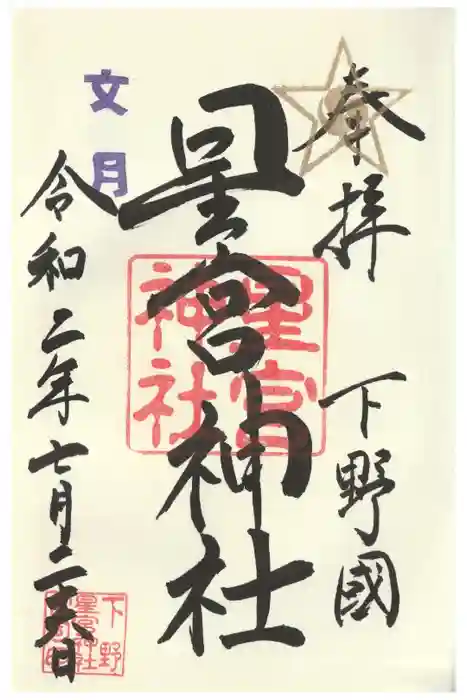 奉拝
下野國
星宮神社
星宮
神社
文月
令和二年七月二六日
下野
星宮神社